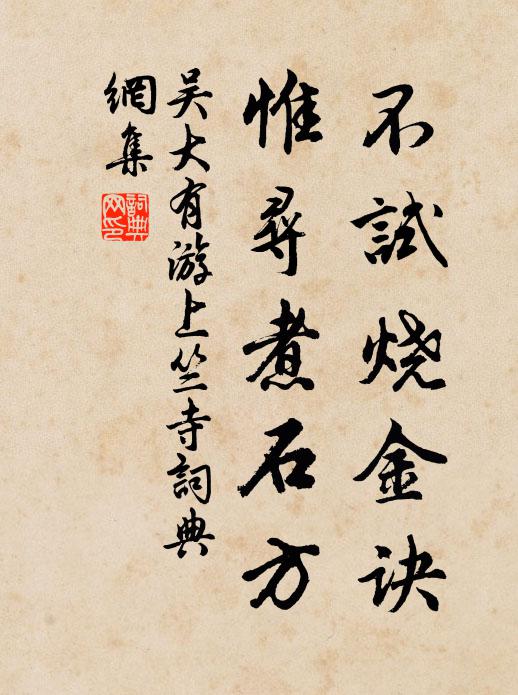 不試烧金诀
惟尋煮石方
吴大有游上竺寺詞典
網集
詞典
网印